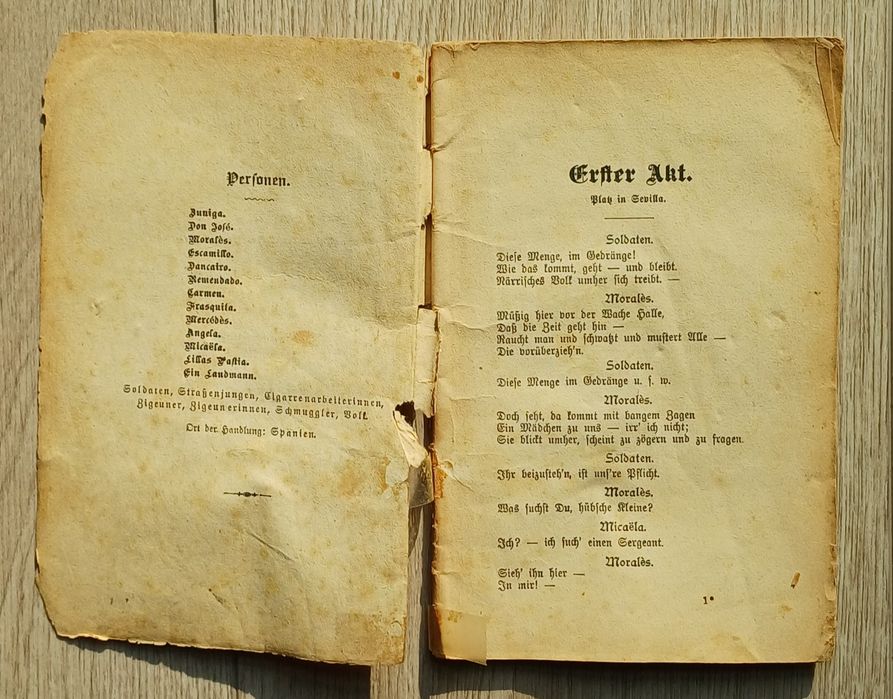 Personen.
Zuniga.
Don José.
Moralès.
Escamillo.
Dancairo.
Remendado.
Carmen.
Frasquita.
Mercédès.
Angela.
Micaëla.
Lillas Pastia.
Ein Landmann.
Soldaten, Straßenjungen, Cigarrenarbeiterinnen,
Zigeuner, Zigeunerinnen, Schmuggler, Volk.
Ort der Handlung: Spanien.
Erster Akt.
Platz in Sevilla.
Soldaten.
Diese Menge, im Gedränge!
Wie das kommt, geht — und bleibt.
Närrisches Volk umher sich treibt. —
Moralès.
Müßig hier vor der Wache Halle,
Daß die Zeit geht hin —
Raucht man und schwatzt und mustert Alle —
Die vorüberzieh'n.
Soldaten.
Diese Menge im Gedränge u. s. w.
Moralès.
Doch seht, da kommt mit bangem Zagen
Ein Mädchen zu uns — irr' ich nicht;
Sie blickt umher, scheint zu zögern und zu fragen.
Soldaten.
Ihr beizusteh'n, ist uns're Pflicht.
Moralès.
Was suchst Du, hübsche Kleine?
Micaëla.
Ich? — ich such' einen Sergeant.
Moralès.
Sieh' ihn hier —
In mir! —
1*